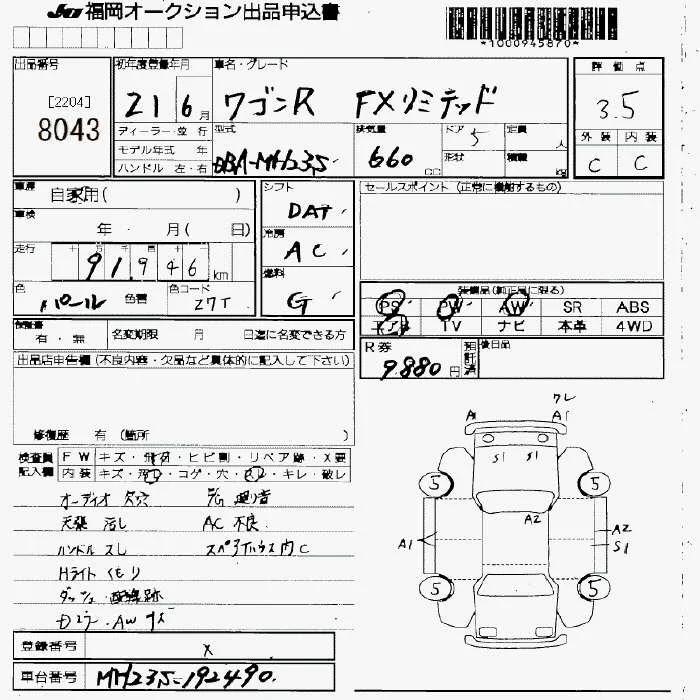 JU 福岡オークション出品申込書
*1000945870*
出品番号
[2204]
8043
初年度登録年月
21 6月
ディーラー・並行
モデル年式 年
ハンドル 左・右
車名・グレード
ワゴンR FXリミテッド
型式
DBA-MH23S
排気量
660 cc
ドア
5
形状
定員
人
積載
kg
評価点
3.5
外装 内装
C C
車歴
自家用( )
車検
年 月( 日)
走行
十 万 千 百 十
91,946 km
色
パール 色替
色コード
Z7T
シフト
DAT
冷房
AC
燃料
G
セールスポイント (正常に機能するもの)
装備品(純正品に限る)
PS PW AW SR ABS
エアB TV ナビ 本革 4WD
R券
9,880円
預託済
後日品
保証書
有・無
名変期限 月 日迄に名変できる方
出品店申告欄(不良内容・欠品など具体的に記入して下さい)
修復歴 有 (箇所 )
検査員記入欄
FW キズ・飛石・ヒビ割・リペア跡・X要
内装 キズ・汚レ・コゲ・穴・スレ・キレ・破レ
オーディオ 欠穴
天張 汚し
AC 不良
ハンドル スレ
Hライト くもり
ダッシュ 配線跡
AW キズ
ワレ
A1 A1
S1 S1
5 5
A2
A1
A2
S1
5 5
登録番号
X
車台番号
MH23S-192490